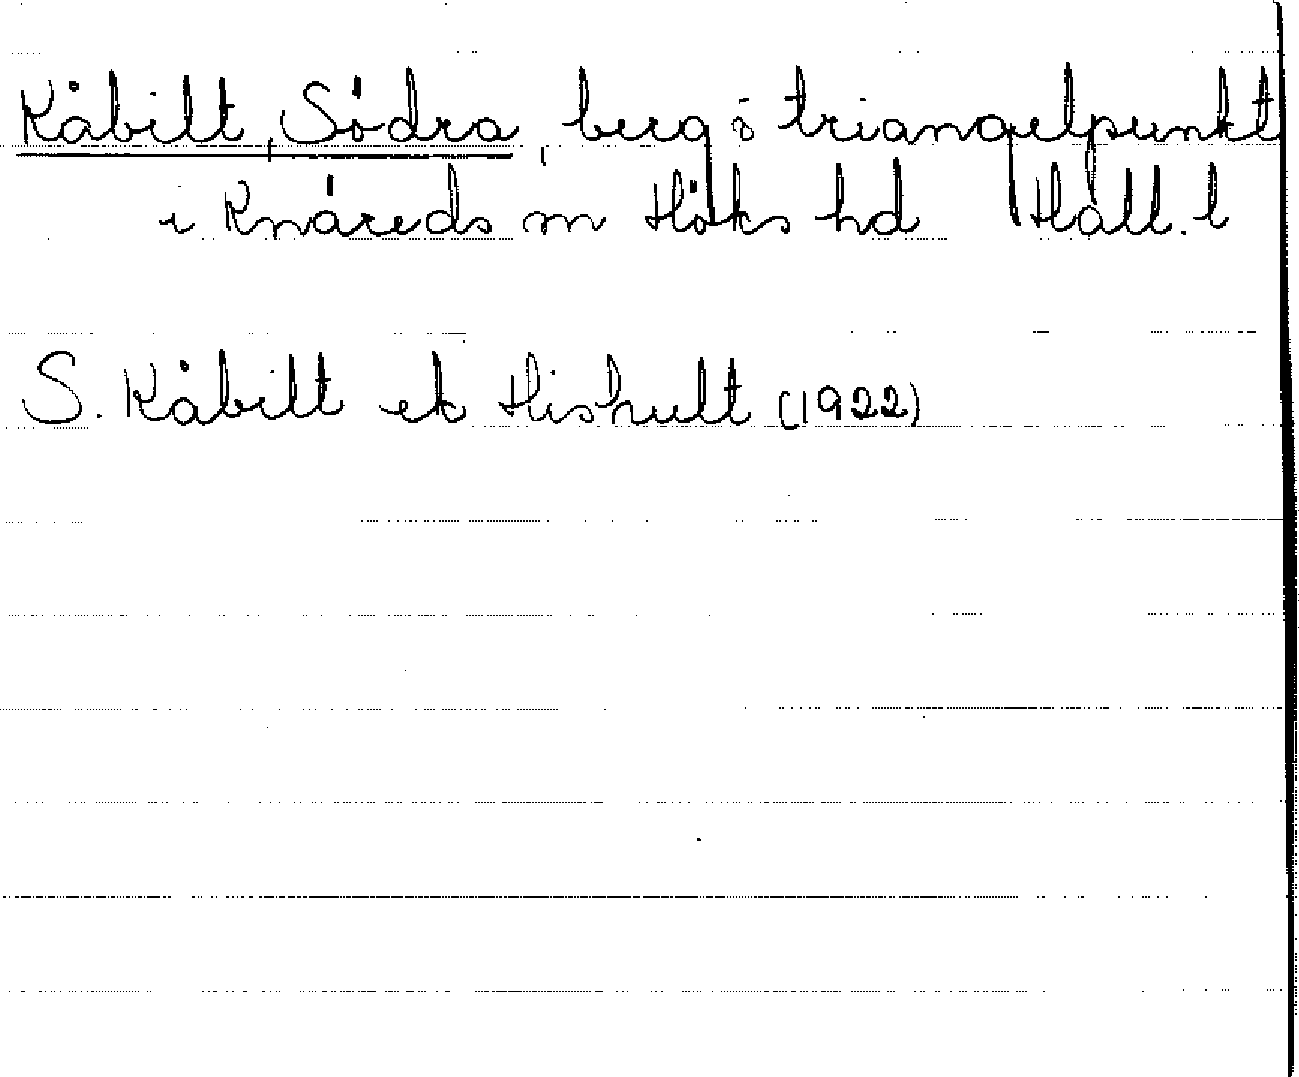 Kåbilt, Södra, berg o triangelpunkt
i Knäreds sn Höks hd Hall. l
S. Kåbilt ek Hishult (1922)